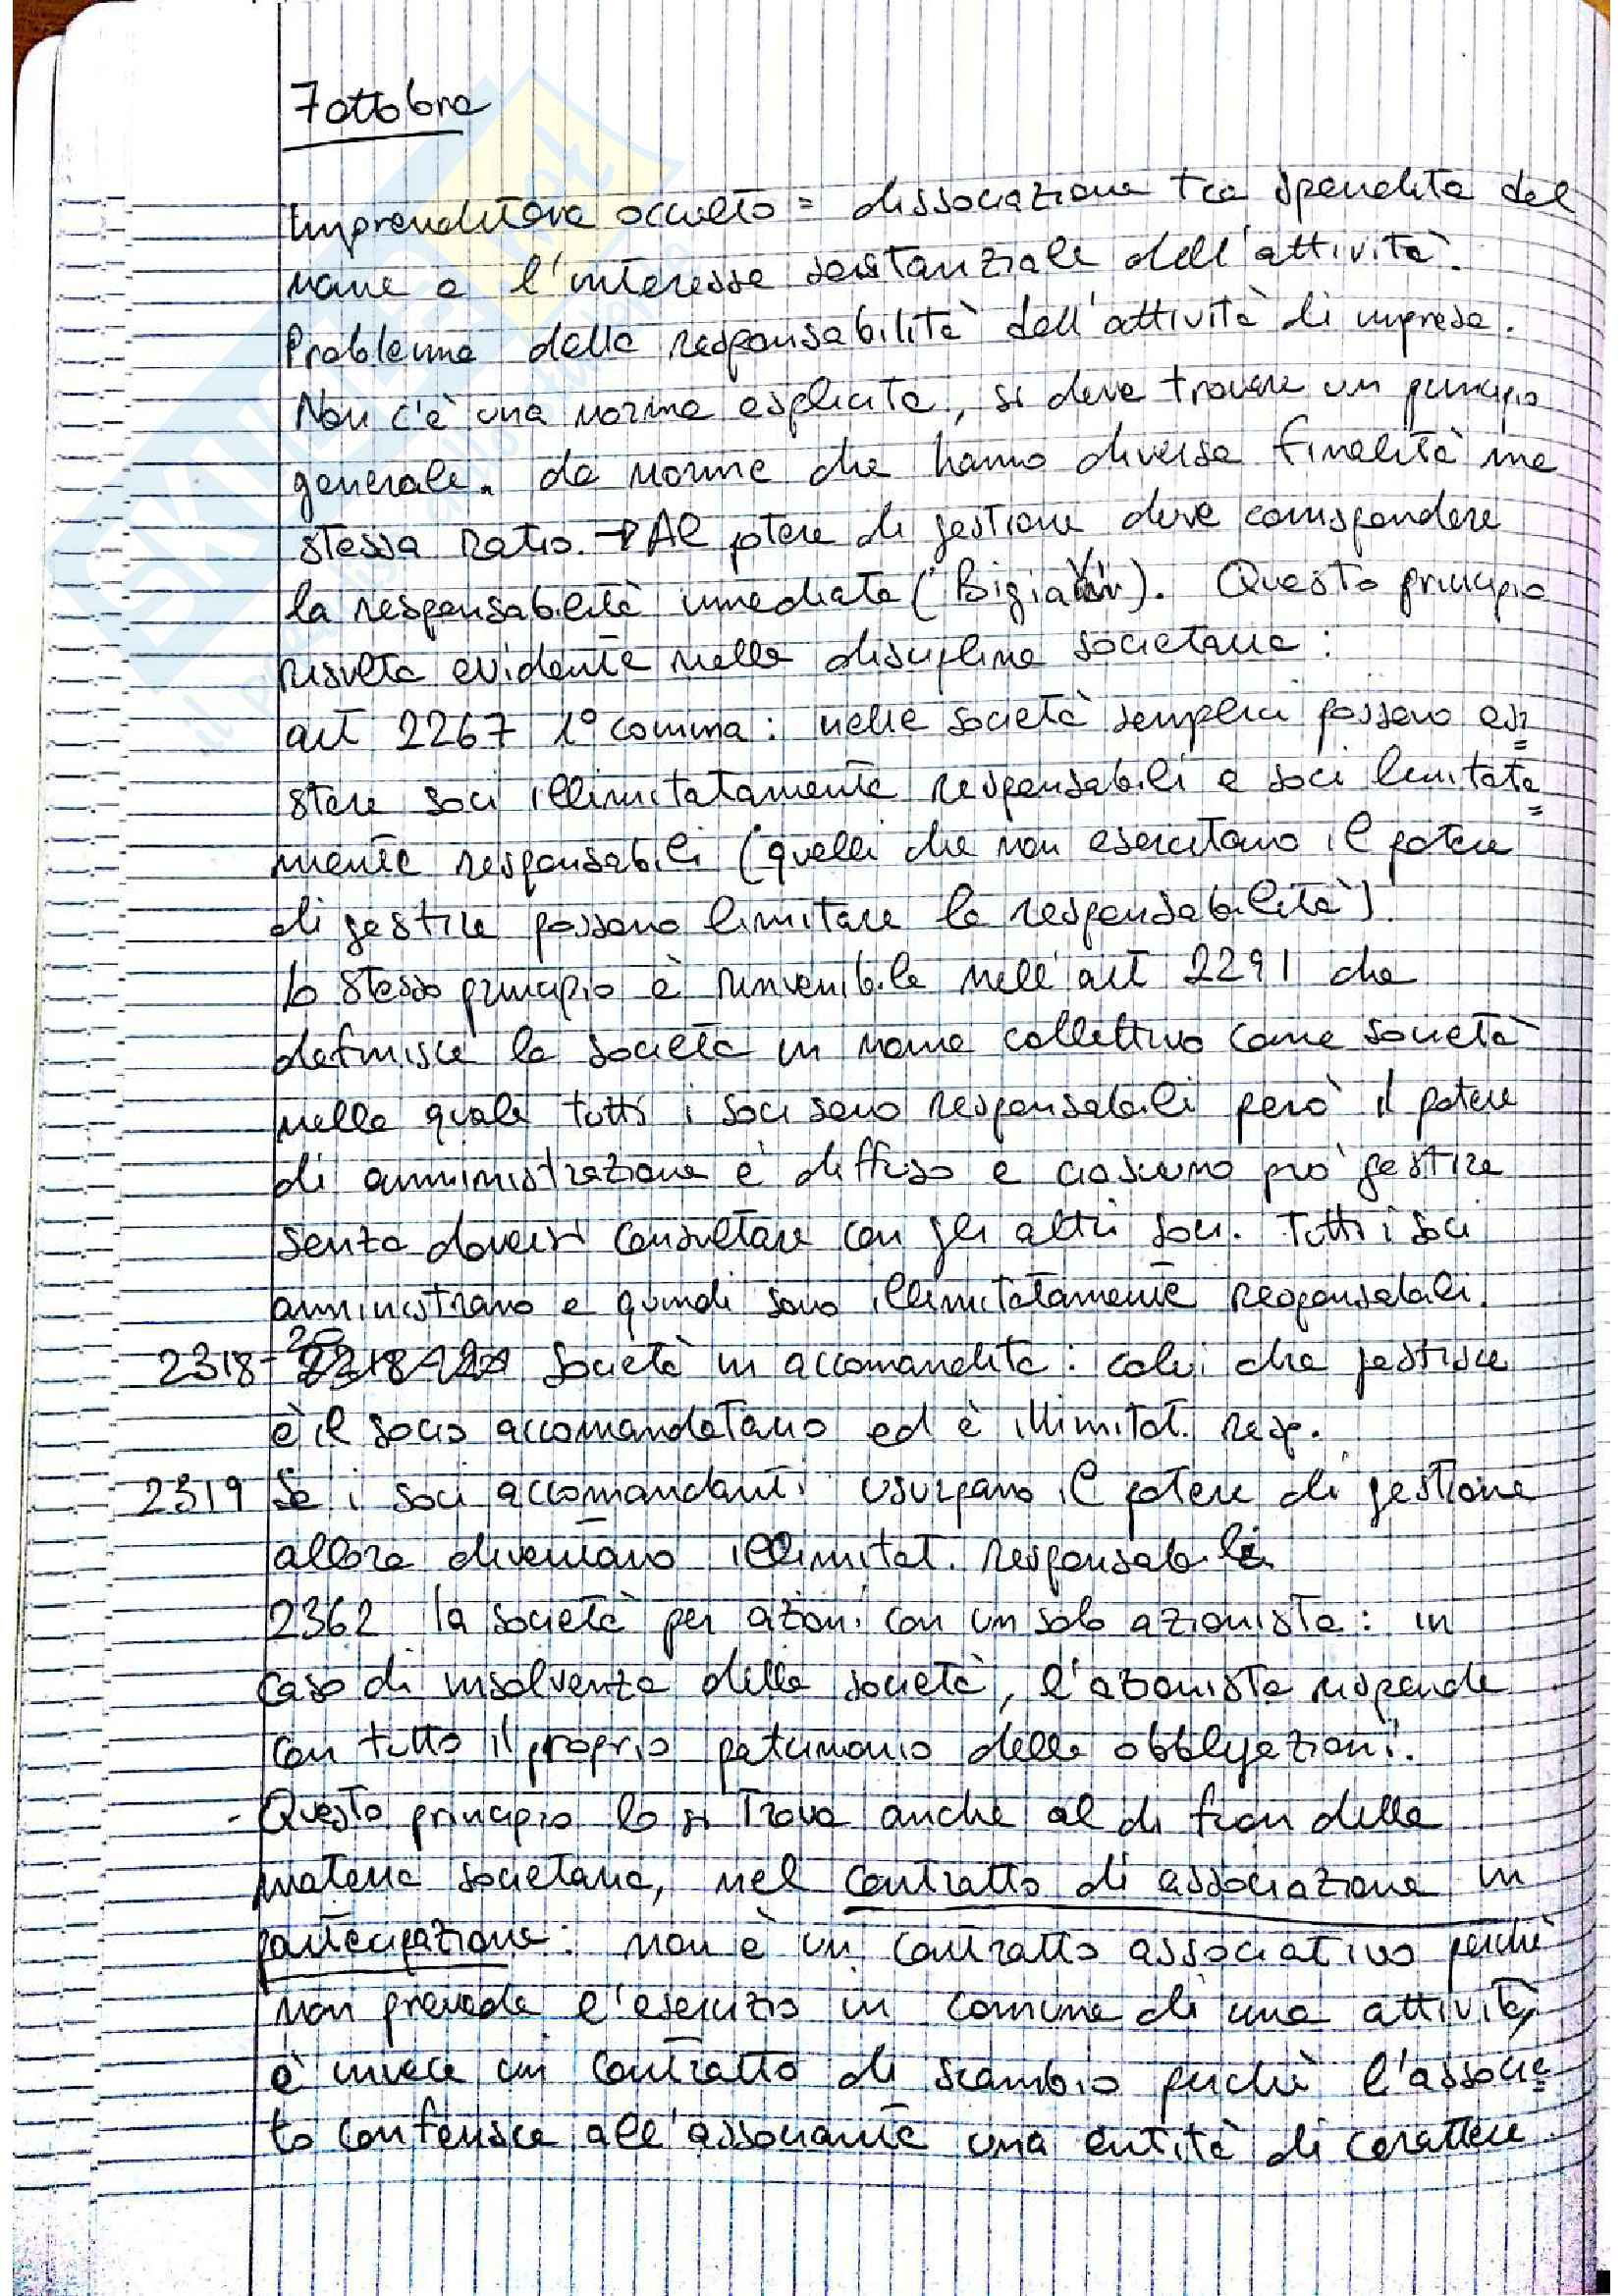 7 ottobre
Imprenditore occulto = dissociazione tra spendita del
nome e l'interesse sostanziale dell'attività.
Problema della responsabilità dell'attività di impresa.
Non c'è una norma esplicita, si deve trovare un principio
generale. da norme che hanno diversa finalità ma
stessa ratio. → Al potere di gestione deve corrispondere
la responsabilità immediata (Bigiavi). Questo principio
risulta evidente nella disciplina societaria:
art 2267 1° comma: nelle società semplici possono esi=
stere soci illimitatamente responsabili e soci limitata=
mente responsabili (quelli che non esercitano il potere
di gestire possono limitare la responsabilità).
Lo stesso principio è rinvenibile nell'art 2291 che
definisce la società in nome collettivo come società
nella quale tutti i soci sono responsabili però il potere
di amministrazione è diffuso e ciascuno può gestire
senza doversi consultare con gli altri soci. Tutti i soci
amministrano e quindi sono illimitatamente responsabili.
2318-20 Società in accomandita: colui che gestisce
è il socio accomandatario ed è illimitat. resp.
2319 Se i soci accomandanti usurpano il potere di gestione
allora diventano illimitat. responsabili
2362 la società per azioni con un solo azionista: in
caso di insolvenza della società, l'azionista risponde
con tutto il proprio patrimonio delle obbligazioni.
- Questo principio lo si trova anche al di fuori della
materia societaria, nel contratto di associazione in
partecipazione: non è un contratto associativo perchè
non prevede l'esercizio in comune di una attività,
è invece un contratto di scambio perchè l'associa=
to conferisce all'associante una entità di carattere
SKUOLA.net
il paradiso dello studente